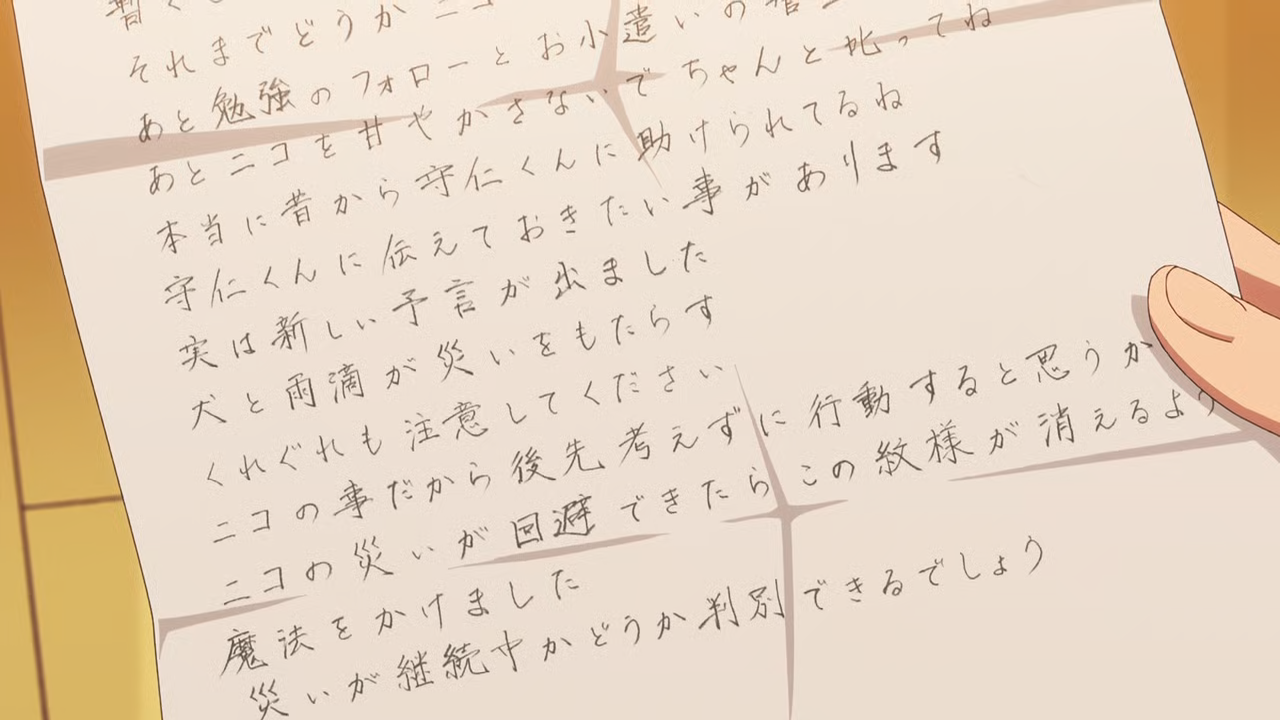 それまでどうかニコ
あと勉強のフォローとお小遣いの管
あとニコを甘やかさないでちゃんと叱ってね
本当に昔から守仁くんに助けられてるね
守仁くんに伝えておきたい事があります
実は新しい予言が出ました
犬と雨滴が災いをもたらす
くれぐれも注意してください
ニコの事だから後先考えずに行動すると思うか
ニコの災いが回避できたらこの紋様が消えるよう
魔法をかけました
災いが継続中かどうか判別できるでしょう